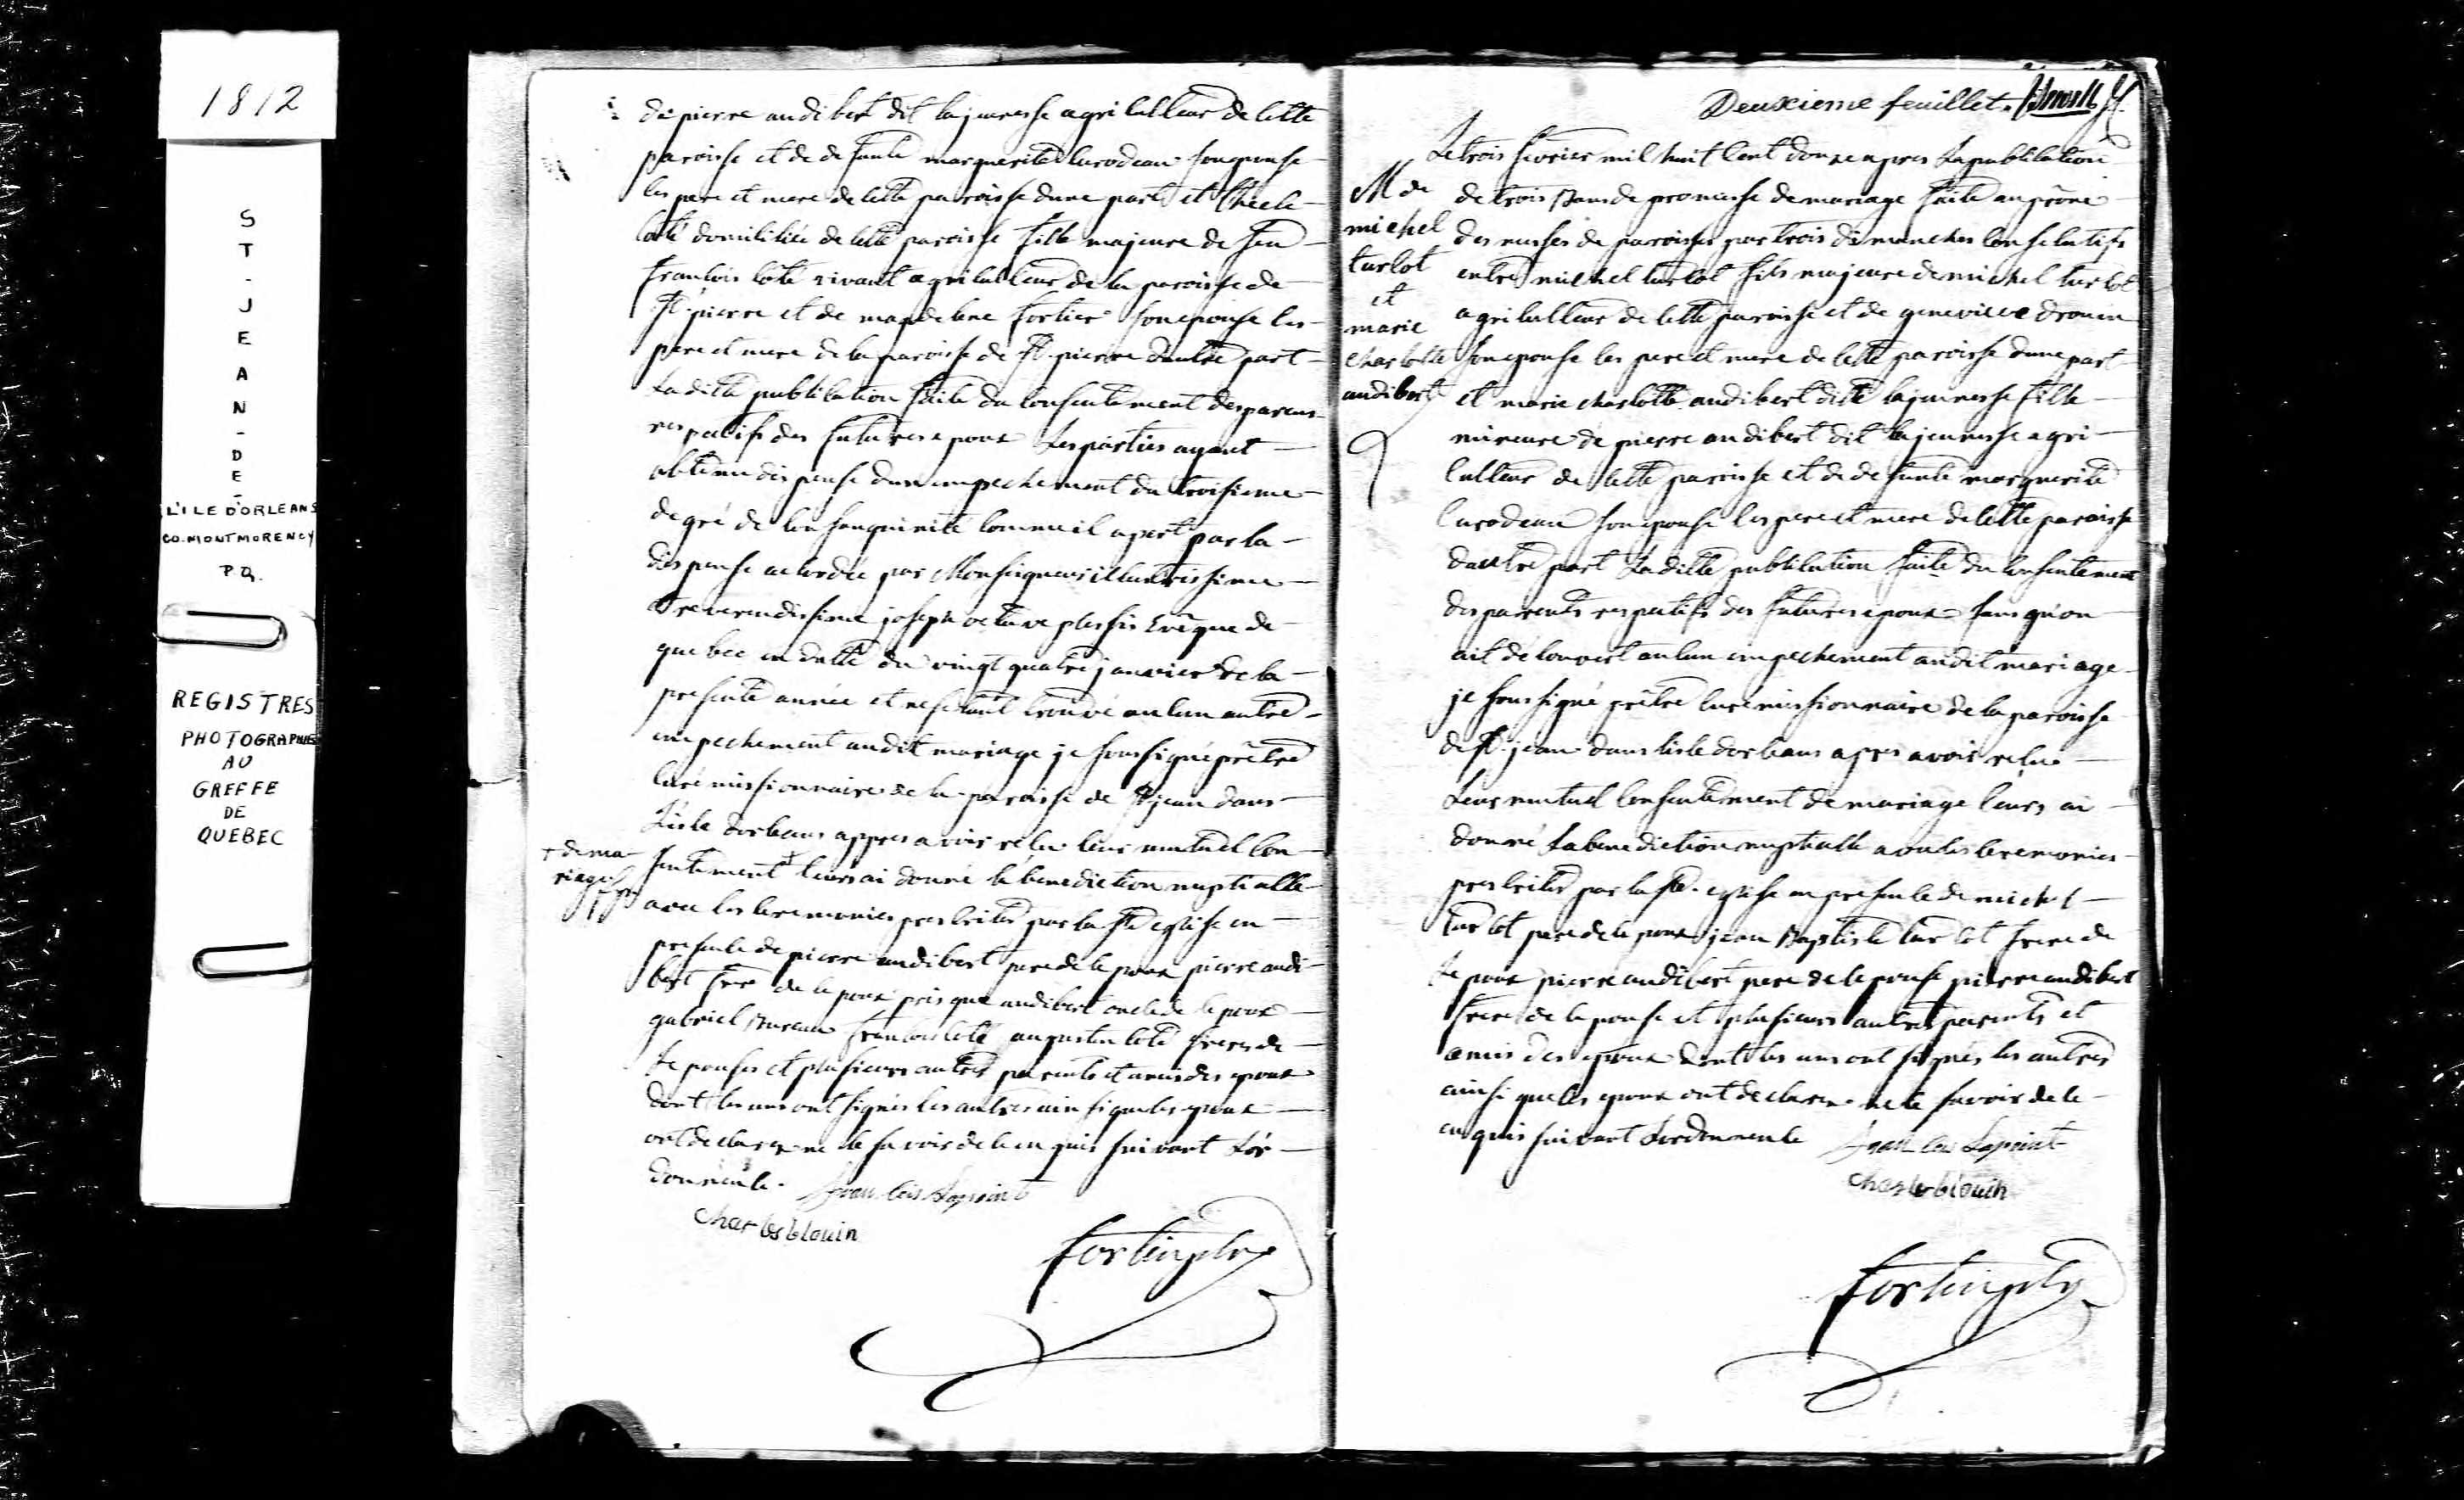 1812
S
T
-
J
E
A
N
-
D
E
-
L'ILE D'ORLEANS
CO. MONTMORENCY
P.Q.
REGISTRES
PHOTOGRAPHIES
AU
GREFFE
DE
QUEBEC
de pierre audibert dit lajeunesse agriculteur de cette
paroisse et de defunte marguerite curodeau son epouse
les pere et mere de cette paroisse dune part et
coté domiciliée de cette paroisse fille majeure de feu
francois coté vivant agriculteur de la paroisse de
St. pierre et de magdelene fortier son epouse les
pere et mere de la paroisse de St. pierre dautre part
La ditte publication faite du consentement des parens
respectifs des futures epoux Les parties ayant
obtenu dispense dun empechement du troisieme
degré de consanguinité comme il apert par la
dispense accordée par Monseigneur illustrissime
et reverendissime joseph octave plessis Evêque de
quebec en datte du vingt quatre janvier de la
presente année et ne setant trouvé aucun autre
empechement audit mariage je soussigné prêtre
curé missionnaire de la paroisse de St jean dans
Lisle dorleans appres avoir recu leur mutuel con
+ de ma
riage
sentement + leurs ai donné la bénédiction nuptialle
avec les ceremonies prescrites par la Ste eglise en
presence de pierre audibert pere de lepoux pierre audi
bert frere de lepoux audibert oncle de lepoux
gabriel francois coté augustin coté freres de
Lepouse et plusieurs autres parents et amis des epoux
dont les uns ont signés les autres ainsi que les epoux
ont declarez ne le savoir de ce enquis suivant Lor
donnance. francois Lapoint
charles blouin
fortin ptre
Deuxieme feuillet.
M de
michel
turlot
et
marie
charlotte
audibert
Le trois fevrier mil huit cent douze apres La publication
de trois Bans de promesse de mariage faite au prône
des messes de paroisses par trois dimanches consecutifs
entre michel turlot fils majeure de michel turlot
agriculteur de cette paroisse et de genevieve drouin
son epouse les pere et mere de cette paroisse dune part
et marie charlotte audibert dite lajeunesse fille
mineure de pierre audibert dit lajeunesse agri
culteur de cette paroisse et de defunte marguerite
curodeau son epouse les pere et mere de cette paroisse
dautre part La ditte publication faite du consentement
des parents respectifs des futures epoux sans qu'on
ait décovert aucun empechement audit mariage
je soussigné prêtre curé missionnaire de la paroisse
de St. jean dans lisle dorleans apres avoir recue
Leur mutuel consentement de mariage leurs ai
donné La benediction nuptialle avec les ceremonies
prescrites par la Ste. eglise en presence de michel
turlot pere de lepoux jean Baptiste turlot frere de
Lepoux pierre audibert pere de lepouse pierre audibert
frere de lepouse et plusieurs autres parents et
amis des epoux dont les uns ont signés les autres
ainsi que les epoux ont declarez ne le savoir de ce
enquis suivant Lordonnance francois Lapoint
charles blouin
fortin ptre